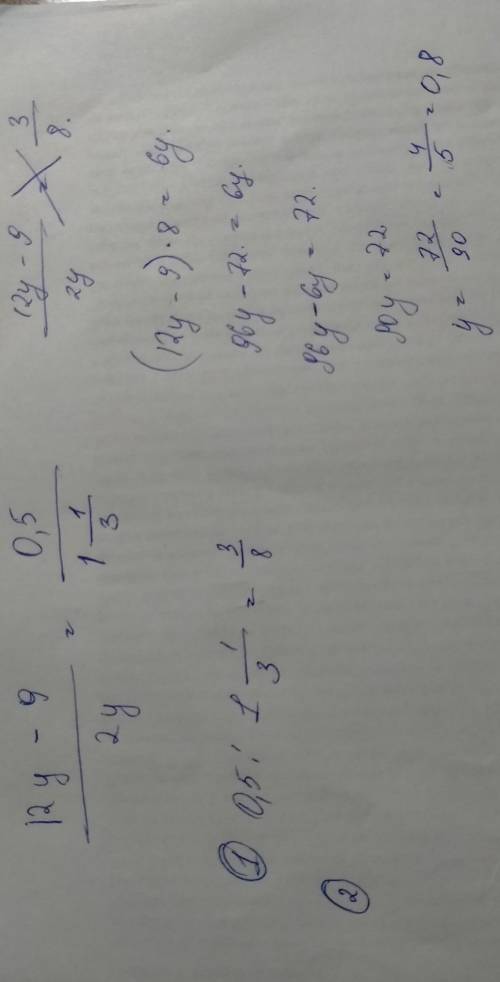 12y - 9 / 2y = 0,5 / 1 1/3
① 0,5 : 1 1/3 = 3/8
②
12y - 9 / 2y = 3/8.
(12y - 9) · 8 = 6y.
96y - 72. = 6y.
96y - 6y = 72.
90y = 72
y = 72/90 = 4/5 = 0,8